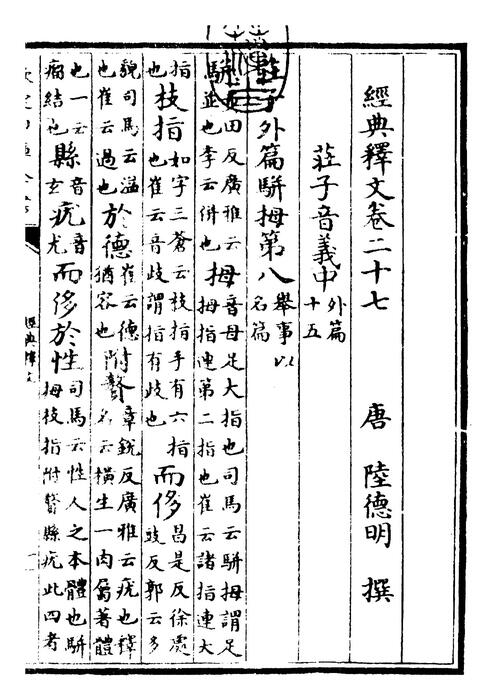 經典釋文卷二十七 唐 陸德明 撰
莊子音義中 外篇十五
莊子外篇駢拇第八 舉事以名篇
駢步田反廣雅云並也李云併也拇音母足大指也司馬云駢拇謂足拇指連第二指也崔云諸指連大
指也枝指如字三蒼云枝指手有六指也崔云音歧謂指有歧也而侈昌是反徐處豉反郭云多
貌司馬云溢也崔云過也於德崔云德猶容也附贅章銳反廣雅云疣也釋名云橫生一肉屬著體
也一云瘤結也縣音玄疣音尤而侈於性司馬云性人之本體也駢拇枝指附贅縣疣此四者
經典釋文